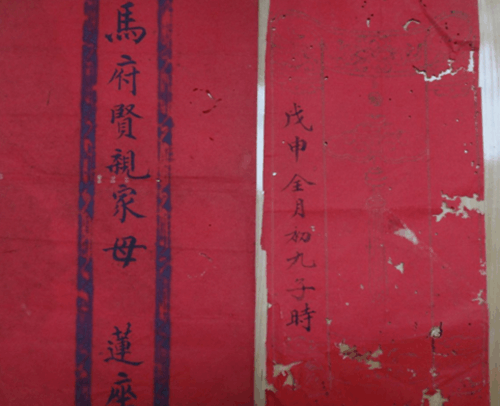 馬府賢親家母 蓮座
戊申全月初九子時